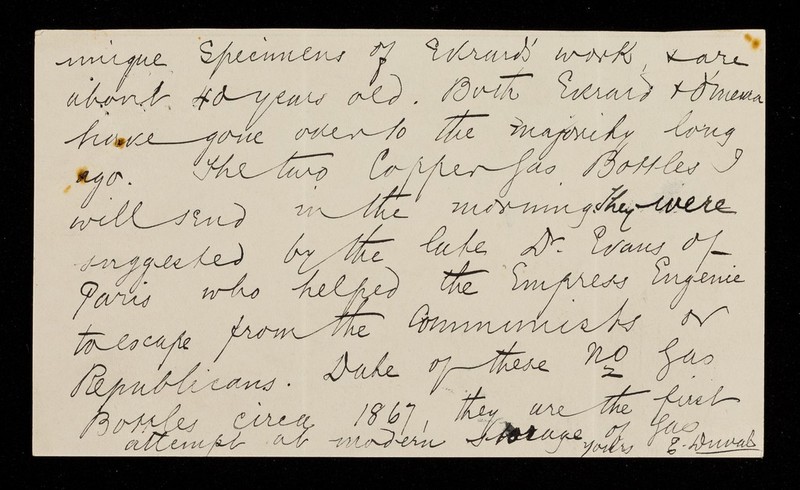 unique specimens of Evrard's work, & are
about 40 years old. Both Evrard &
have gone over to the majority long
ago. The two Copper Gas Bottles I
will send in the morning They were
suggested by the late Dr. Evans of
Paris who helped the Empress Eugenie
to escape from the Communists or
Republicans. Date of these NO Gas
Bottles circa 1867, they are the first
attempt at modern storage of Gas
yours E. Duval